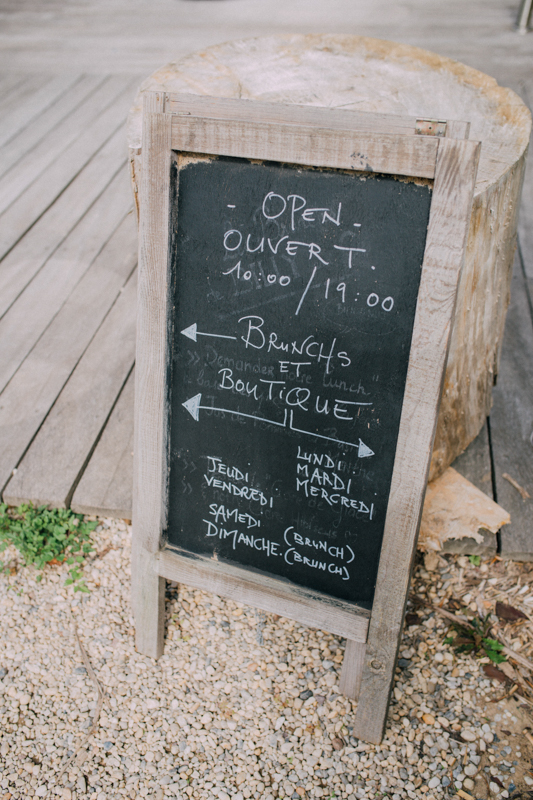 - OPEN -
OUVERT.
10:00 / 19:00
BRUNCHS
ET
BOUTIQUE
JEUDI
VENDREDI
SAMEDI (BRUNCH)
DIMANCHE. (BRUNCH)
LUNDI
MARDI
MERCREDI